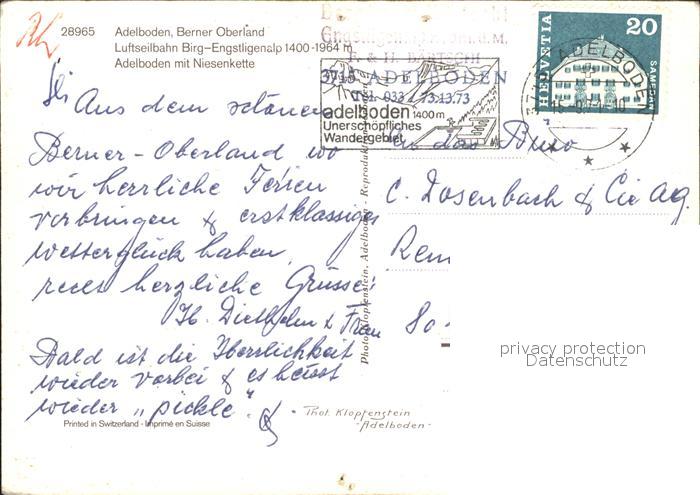 28965 Adelboden, Berner Oberland
Luftseilbahn Birg-Engstligenalp 1400-1964 m
Adelboden mit Niesenkette
F. & H. BARTSCH
3715 ADELBODEN
Tel. 033 / 73.13.73
adelboden 1400m
Unerschöpfliches
Wandergebiet
HELVETIA 20
SAMEDAN
ADELBODEN
Aus dem schönen
Berner-Oberland wo
wir herrliche Ferien
verbringen & erstklassiges
Wetterglück haben,
recht herzliche Grüsse.
H. Diethelm & Frau
Bald ist die Herrlichkeit
wieder vorbei & es heisst
wieder „pickle".
An das Büro
C. Dosenbach & Cie AG.
Ren
80
Photo Klopfenstein, Adelboden - Reproduktion
privacy protection
Datenschutz
Phot. Klopfenstein
-Adelboden-
Printed in Switzerland - Imprimé en Suisse